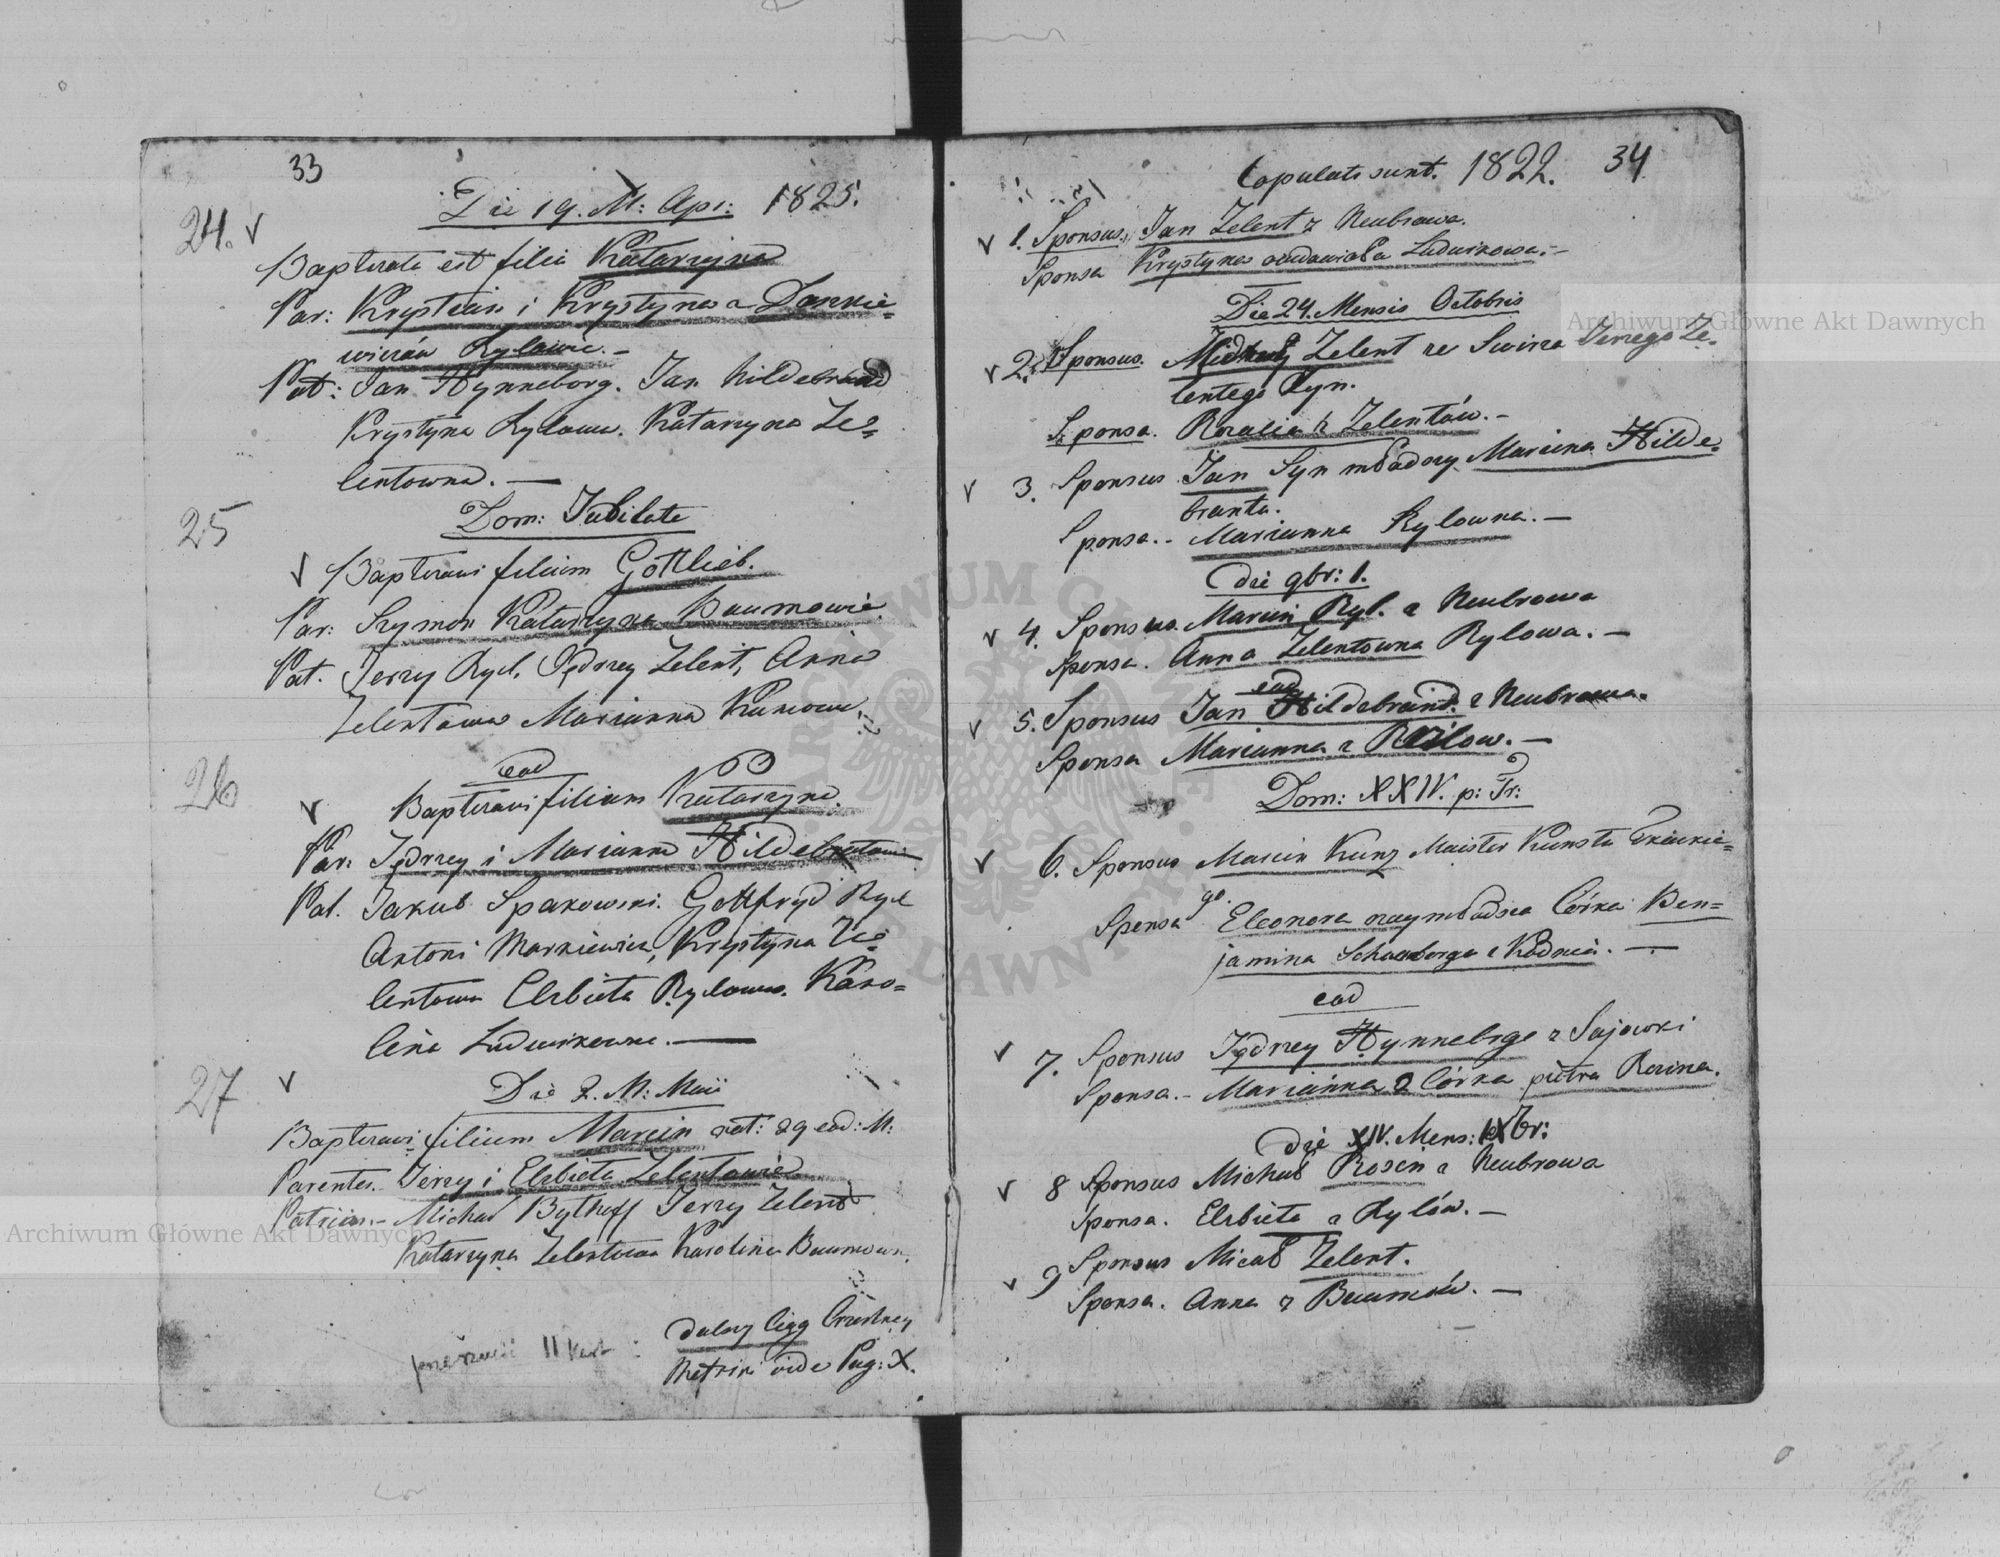 33
Die 19. M: Apr: 1825.
24. v
Baptizata est filia Katarzyna
Par: Krystian i Krystyna z Dankie=
wiczów Rylowie.–
Pat: Jan Hynneborg. Jan Hildebrand
Krystyna Rylowa. Katarzyna Ze=
lentowna.—
25
Dom: Jubilate
v Baptizavi filium Gottlieb.
Par: Szymon Katarzyna Baumowie.
Pat. Jerzy Ryl, Jędrzey Zelent, Anna
Zelentowa Marianna
26
eod
v Baptizavi filiam Katarzyna.
Par: Jędrzey i Marianna
Pat. Jakub Spakowski. Gottfryd Ryl
Antoni Markiewicz, Krystyna Ze=
lentowa Elzbieta Rylowa. Karo=
lina Ludwikowna.—
27 v
Die 2. M: Maii
Baptizavi filium Marcin nat: 29 eod: M:
Parentes. Jerzy i Elzbieta Zelentowie
Patrini.– Michał Bythoff Jerzy Zelent
Katarzyna Zelentowa Karolina Baumowa.
dalszy ciąg Chrzestney
Metriki vide Pag: X.
11 kart :
Copulati sunt. 1822. 34
v 1. Sponsus, Jan Zelent z Neubrowa.
Sponsa Krystyna owdowiała Ludwikowa.–
Die 24. Mensis Octobris
v 2. Sponsus. Michał Zelent ze Swirza Jerzego Ze=
lentego Syn.
Sponsa. Rozalia z Zelentów.–
v 3. Sponsus Jan Syn młodszy Marcina Hilde=
branta.
Sponsa.– Marianna Rylowna.–
Die 9br: 1.
v 4. Sponsus. Marcin Ryl. z Neubrowa
Sponsa. Anna Zelentowna Rylowa.–
eod
v 5. Sponsus Jan Hildebrand. z Neubrowa.
Sponsa Marianna z Rilow.–
Dom: XXIV. p: Tr:
v 6. Sponsus Marcin Kunz Maister Kunsztu Tkackie=
go.
Sponsa Eleonora naymłodsza Córka Ben=
jamina
eod
v 7. Sponsus Jędrzey Hynneborge z Sajowki
Sponsa.– Marianna Córka piotra Rozina.
die XIV. Mens: Xbr:
v 8 Sponsus Michał Rosin z Neubrowa
Sponsa. Elzbieta z Rylów.–
v 9 Sponsus Micał Zelent.
Sponsa. Anna z Baumów.–
Archiwum Główne Akt Dawnych
Archiwum Główne Akt Dawnych
ARCHIWUM GŁÓWNE AKT DAWNYCH